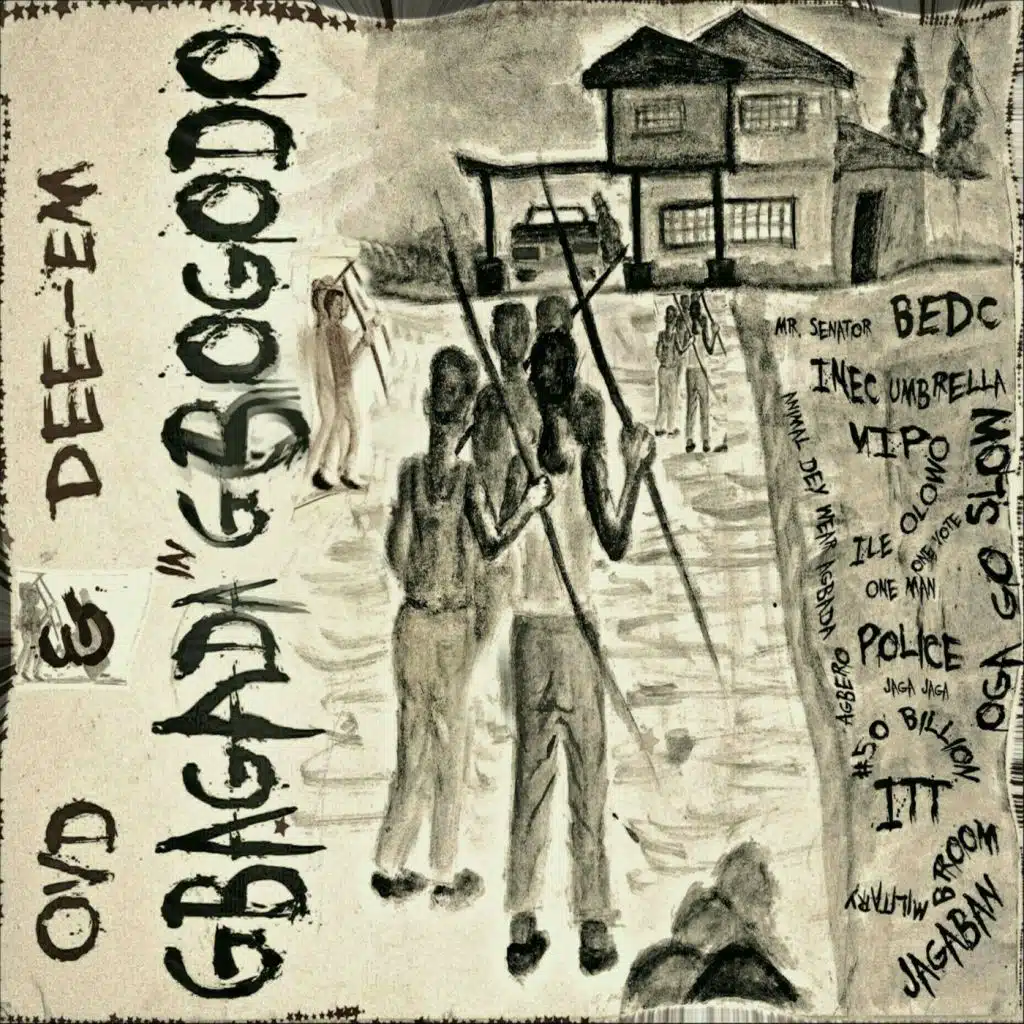 OVD
&
DEE-EM
GBAGADA
IN
GBOGODO
MR. SENATOR
BEDC
INEC
UMBRELLA
VIP
OLOWO
ILE
ONE MAN
ONE VOTE
OGA GO SLOW
ANIMAL DEY WEAR AGBADA
AGBERO
POLICE
JAGA JAGA
#50 BILLION
ITT
MILITARY
BROOM
JAGABAN